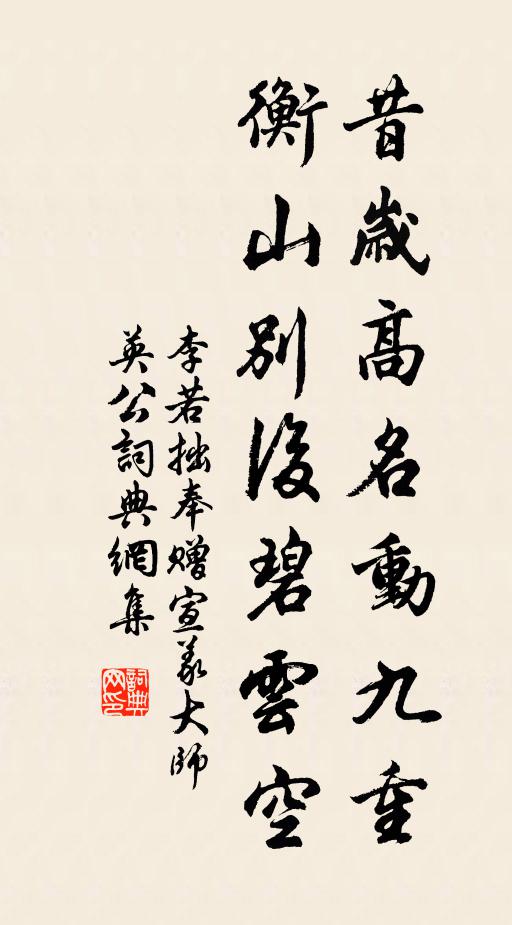 昔歲高名動九重
衡山別後碧雲空
李若拙奉贈宣義大師
英公詞典網集
詞典网印